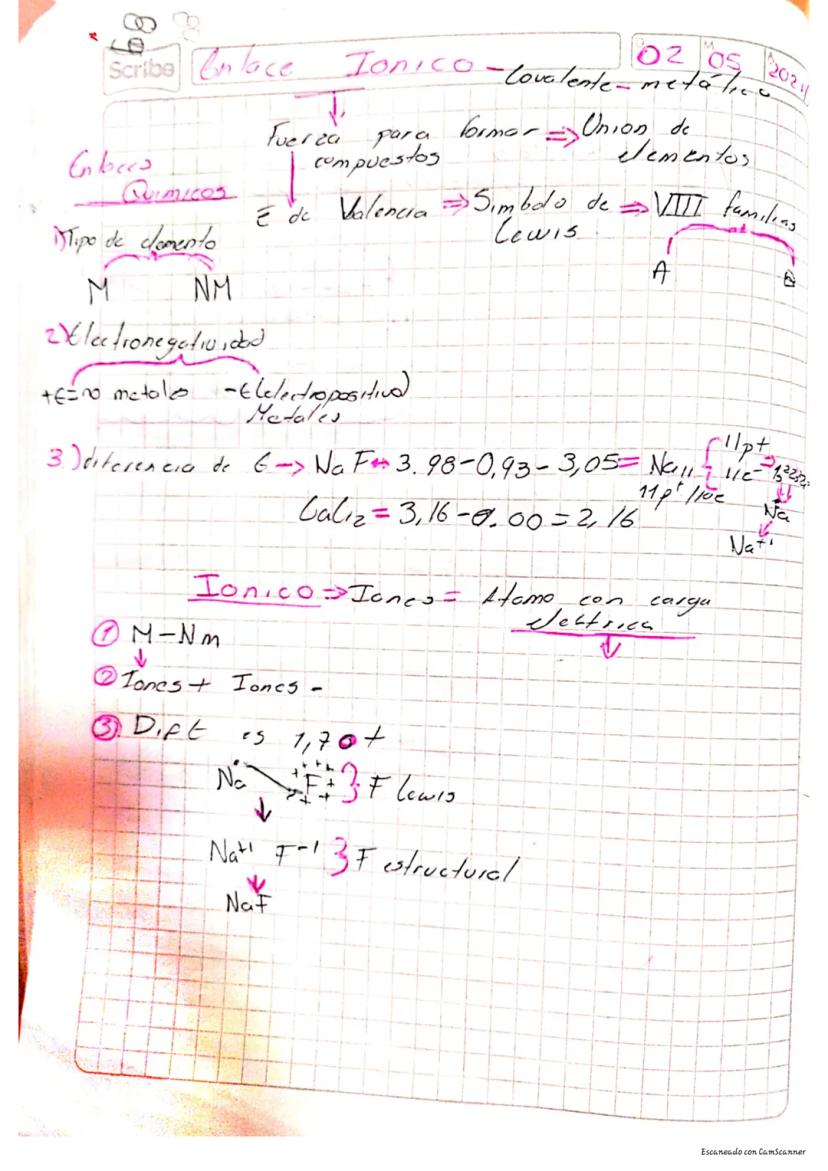 68
Scribe
Enlace Ionico - Covalente - metálico
02 05 2024
Fuerza para formar ⇒ Union de
compuestos elementos
Enlaces
Quimicos
E de Valencia ⇒ Simbolo de ⇒ VIII familias
Lewis
A B
1) Tipo de elemento
M NM
2) Electronegatividad
+E = no metales - E (electropositivo)
Metales
3.) diferencia de E → NaF 3.98 - 0,93 - 3,05 = Na11
11p+
11e-
11p+ / 10e
CaCl2 = 3,16 - 1.00 = 2,16
Na
Na+1
Ionico ⇒ Iones = Atomo con carga
electrica
① M - Nm
② Iones + Iones -
③ Dif E es 1,70 +
Na F } F lewis
Na+1 F-1 } F estructural
NaF
Escaneado con CamScanner